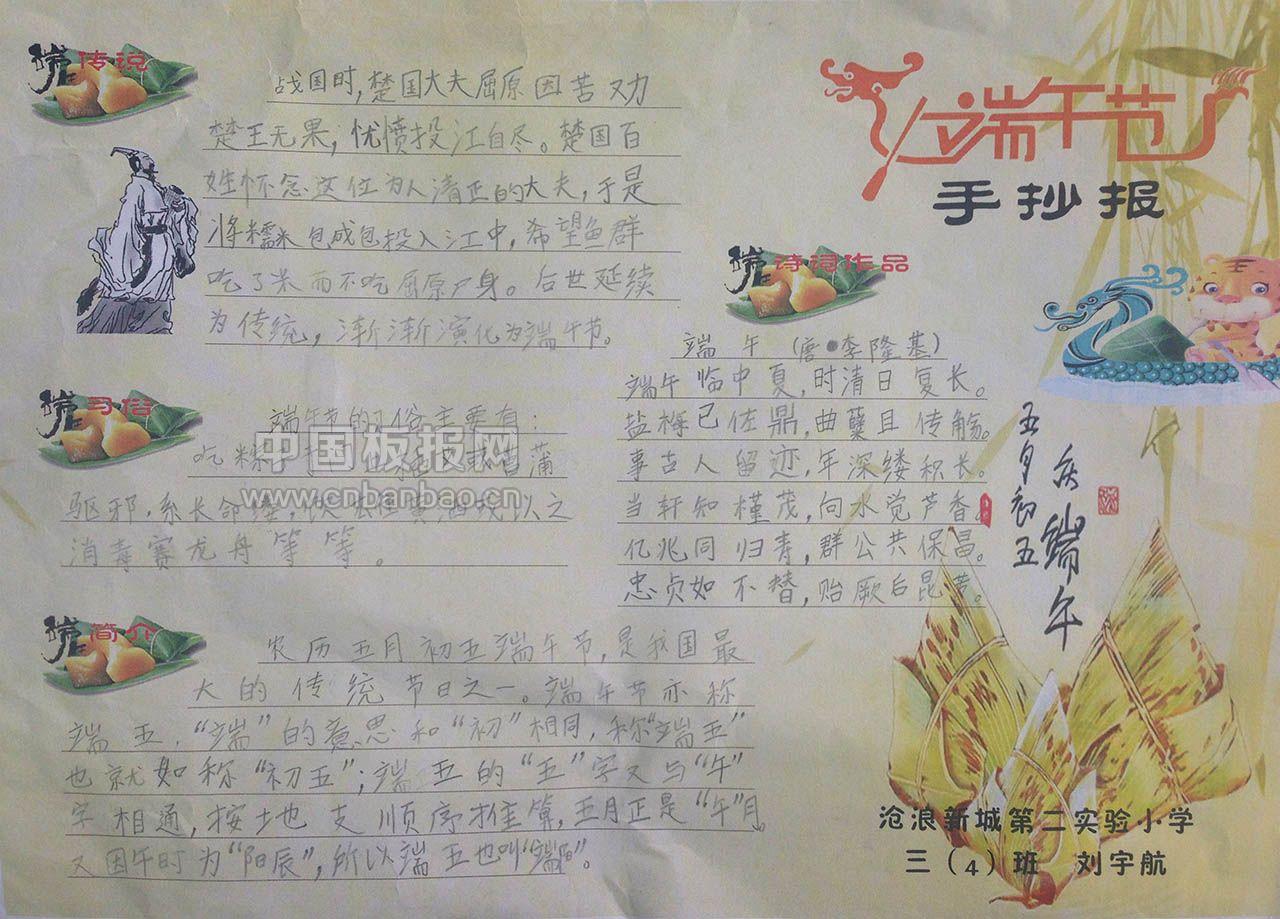 端午节
手抄报
端午传说
战国时，楚国大夫屈原因苦又力
楚王无果，忧愤投江自尽。楚国百
姓怀念这位为人清正的大夫，于是
将糯米包成包投入江中，希望鱼群
吃了米而不吃屈原尸身。后世延续
为传统，渐渐演化为端午节。
端午习俗
端午节的习俗主要有：
吃粽 菖蒲
驱邪，系长命缕，饮 雄黄酒或以之
消毒赛龙舟等等。
端午简介
农历五月初五端午节，是我国最
大的传统节日之一。端午节亦称
端五，“端”的意思和“初”相同，称“端五”
也就如称“初五”；端五的“五”字又与“午”
字相通，按土地支顺序推算，五月正是“午”月。
又因午时为“阳辰”，所以端五也叫“端阳”。
端午诗词作品
端午（唐·李隆基）
端午临中夏，时清日复长。
盐梅已佐鼎，曲糵且传觞。
事古人留迹，年深缕积长。
当轩知槿茂，向水觉芦香。
亿兆同归寿，群公共保昌。
忠贞如不替，贻厥后昆芳。
五月初五
庆端午
沧浪新城第二实验小学
三（4）班 刘宇航
中国板报网
www.cnbanbao.cn